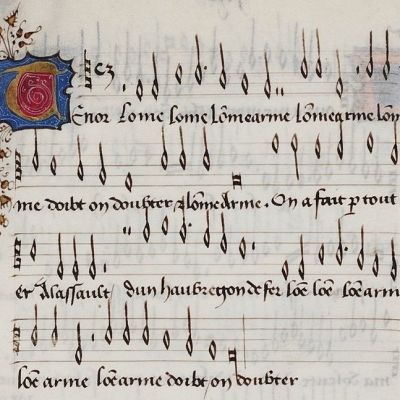 Tenor Lome Lome Lõmearme Lõmearme Lõm
me doibt on doubter Lõmearme. On a fait p tout
er Alassault dun haubregon de fer Lõe lõe lõe arm
lõe arme lõe arme doibt on doubter